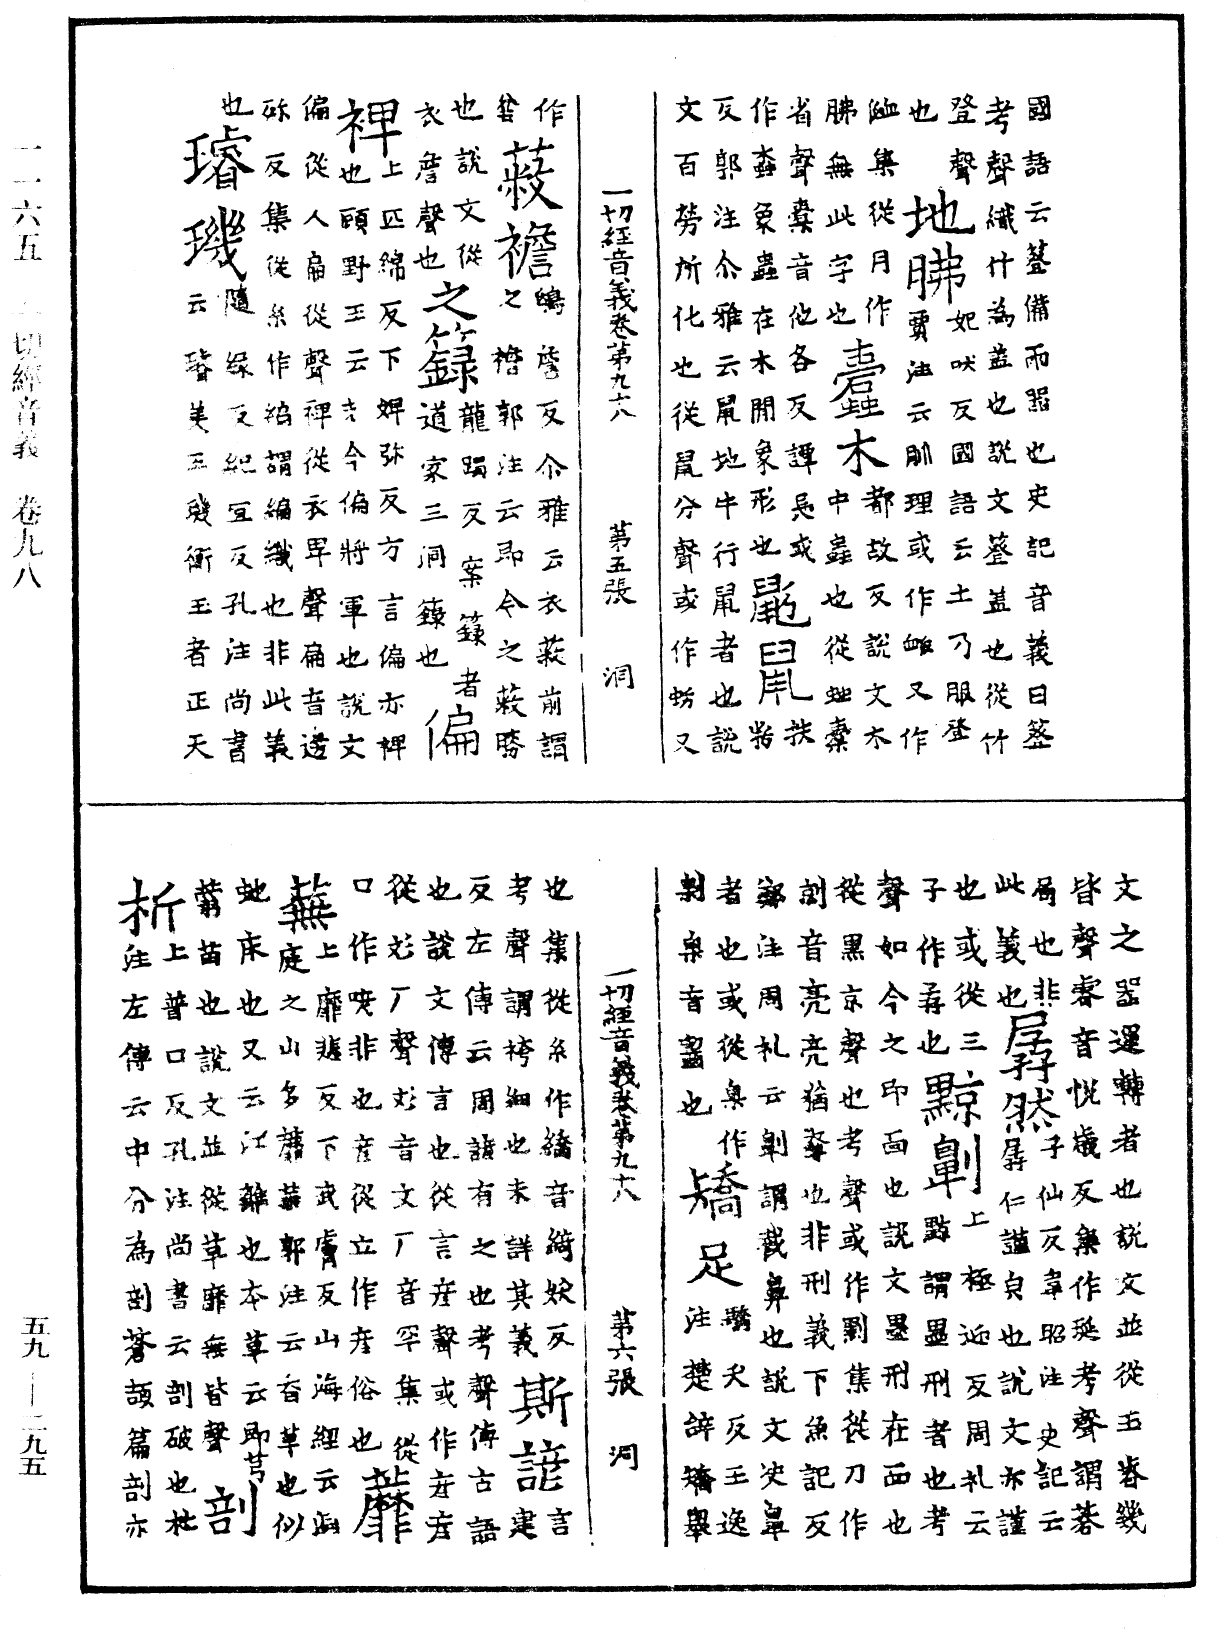 國語云簦備雨器也史記音義曰簦
考聲織什為蓋也說文簦蓋也從竹
登聲 地胇 妃吠反國語云土乃服登
也 賈注云胇理或作䏢又作
䏢集從月作 蠹木 都故反說文木
胇無此字也 中蟲也從䖵橐
省聲橐音他各反譚長或
作螙象蟲在木間象形也 鼢鼠 扶
反郭注尒雅云鼠地中行鼠者也說
文百勞所化也從鼠分聲或作蚡又
一切經音義卷第九十八 第五張 洞
作 鳴詹反尒雅云衣蔽前謂
蔽襜 之襜郭注云即今之蔽膝
也說文從
衣詹聲也 之籙 龍蹋反案籙者
道家三洞籙也 偏
裨 上匹綿反下婢弥反方言偏亦裨
也顧野王云古今偏將軍也說文
偏從人扁從聲裨從衣卑聲扁音邊
弥反集從糸作編謂編織也非此義
也 璿璣 隨緣反紀宜反孔注尚書
云璿美玉璣衡王者正天
文之器運轉者也說文並從玉睿幾
皆聲睿音悅歲反集作琁考聲謂碁
局也非 史記云
此義也 孱然 子仙反韋昭注
孱仁謹皃也說文亦謹
也或從三 上極迎反周礼云
子作孨也 黥劓 黥謂墨刑者也考
聲如今之印面也說文墨刑在面也
從黑京聲也考聲或作剠集從刀作
剠音亮亮猶掠也非刑義下魚記反
鄭注周礼云劓謂截鼻也說文從鼻
者也或從臬作 矯足 驕夭反王逸
劓臬音齧也 注楚辭矯舉
一切經音義卷第九十八 第六張 洞
也集從糸作繑音綺妖反 言
考聲謂袴細也未詳其義 斯諺 建
反左傳云周諺有之也考聲傳古語
也說文傳言也從言彥聲或作彥彥
從彣厂聲彣音文厂音罕集從
口作喭非也彥從立作産俗也 蘼
蕪 上靡悲反下武膚反山海經云
庭之山多蘼蕪郭注云香草也似
虵床也又云江蘺也本草云即芎
藭苗也說文並從草靡無皆聲 剖
析 上普口反孔注尚書云剖破也杜
注左傳云中分為剖蒼頡篇剖亦
一一六五 一切經音義 卷九八
五九—二九五